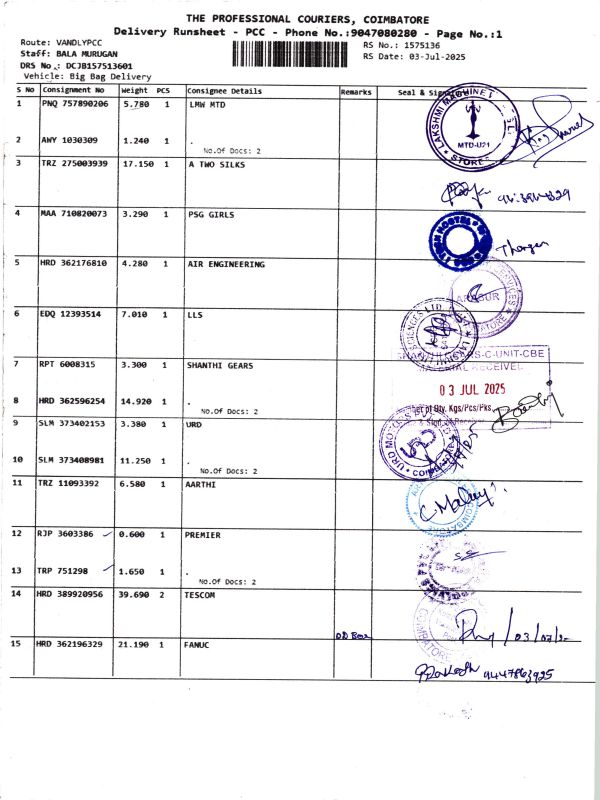 THE PROFESSIONAL COURIERS, COIMBATORE
Delivery Runsheet - PCC - Phone No.:9047080280 - Page No.:1
Route: VANDLYPCC
Staff: BALA MURUGAN
DRS No.: DCJB157513601
Vehicle: Big Bag Delivery
RS No.: 1575136
RS Date: 03-Jul-2025
S No Consignment No Weight PCS Consignee Details Remarks Seal &
1 PNQ 757890206 5.780 1 LMW MTD
LAKSHMI MACHINE
MTD-U21
STORES
2 AWY 1030309 1.240 1 .
No.Of Docs: 2
3 TRZ 275003939 17.150 1 A TWO SILKS
4 MAA 710820073 3.290 1 PSG GIRLS
HOSTEL
5 HRD 362176810 4.280 1 AIR ENGINEERING
6 EDQ 12393514 7.010 1 LLS
SCIENCES LTD
7 RPT 6008315 3.300 1 SHANTHI GEARS
S-C-UNIT-CBE
03 JUL 2025
of Qty. Kgs/Pcs/Pks.
8 HRD 362596254 14.920 1 .
No.Of Docs: 2
9 SLM 373402153 3.380 1 URD
URD MOTORS
10 SLM 373408981 11.250 1 .
No.Of Docs: 2
11 TRZ 11093392 6.580 1 AARTHI
COIMBATORE
12 RJP 3603386 0.600 1 PREMIER
13 TRP 751298 1.650 1 .
No.Of Docs: 2
14 HRD 389920956 39.690 2 TESCOM
COIMBATORE
15 HRD 362196329 21.190 1 FANUC
9447863925